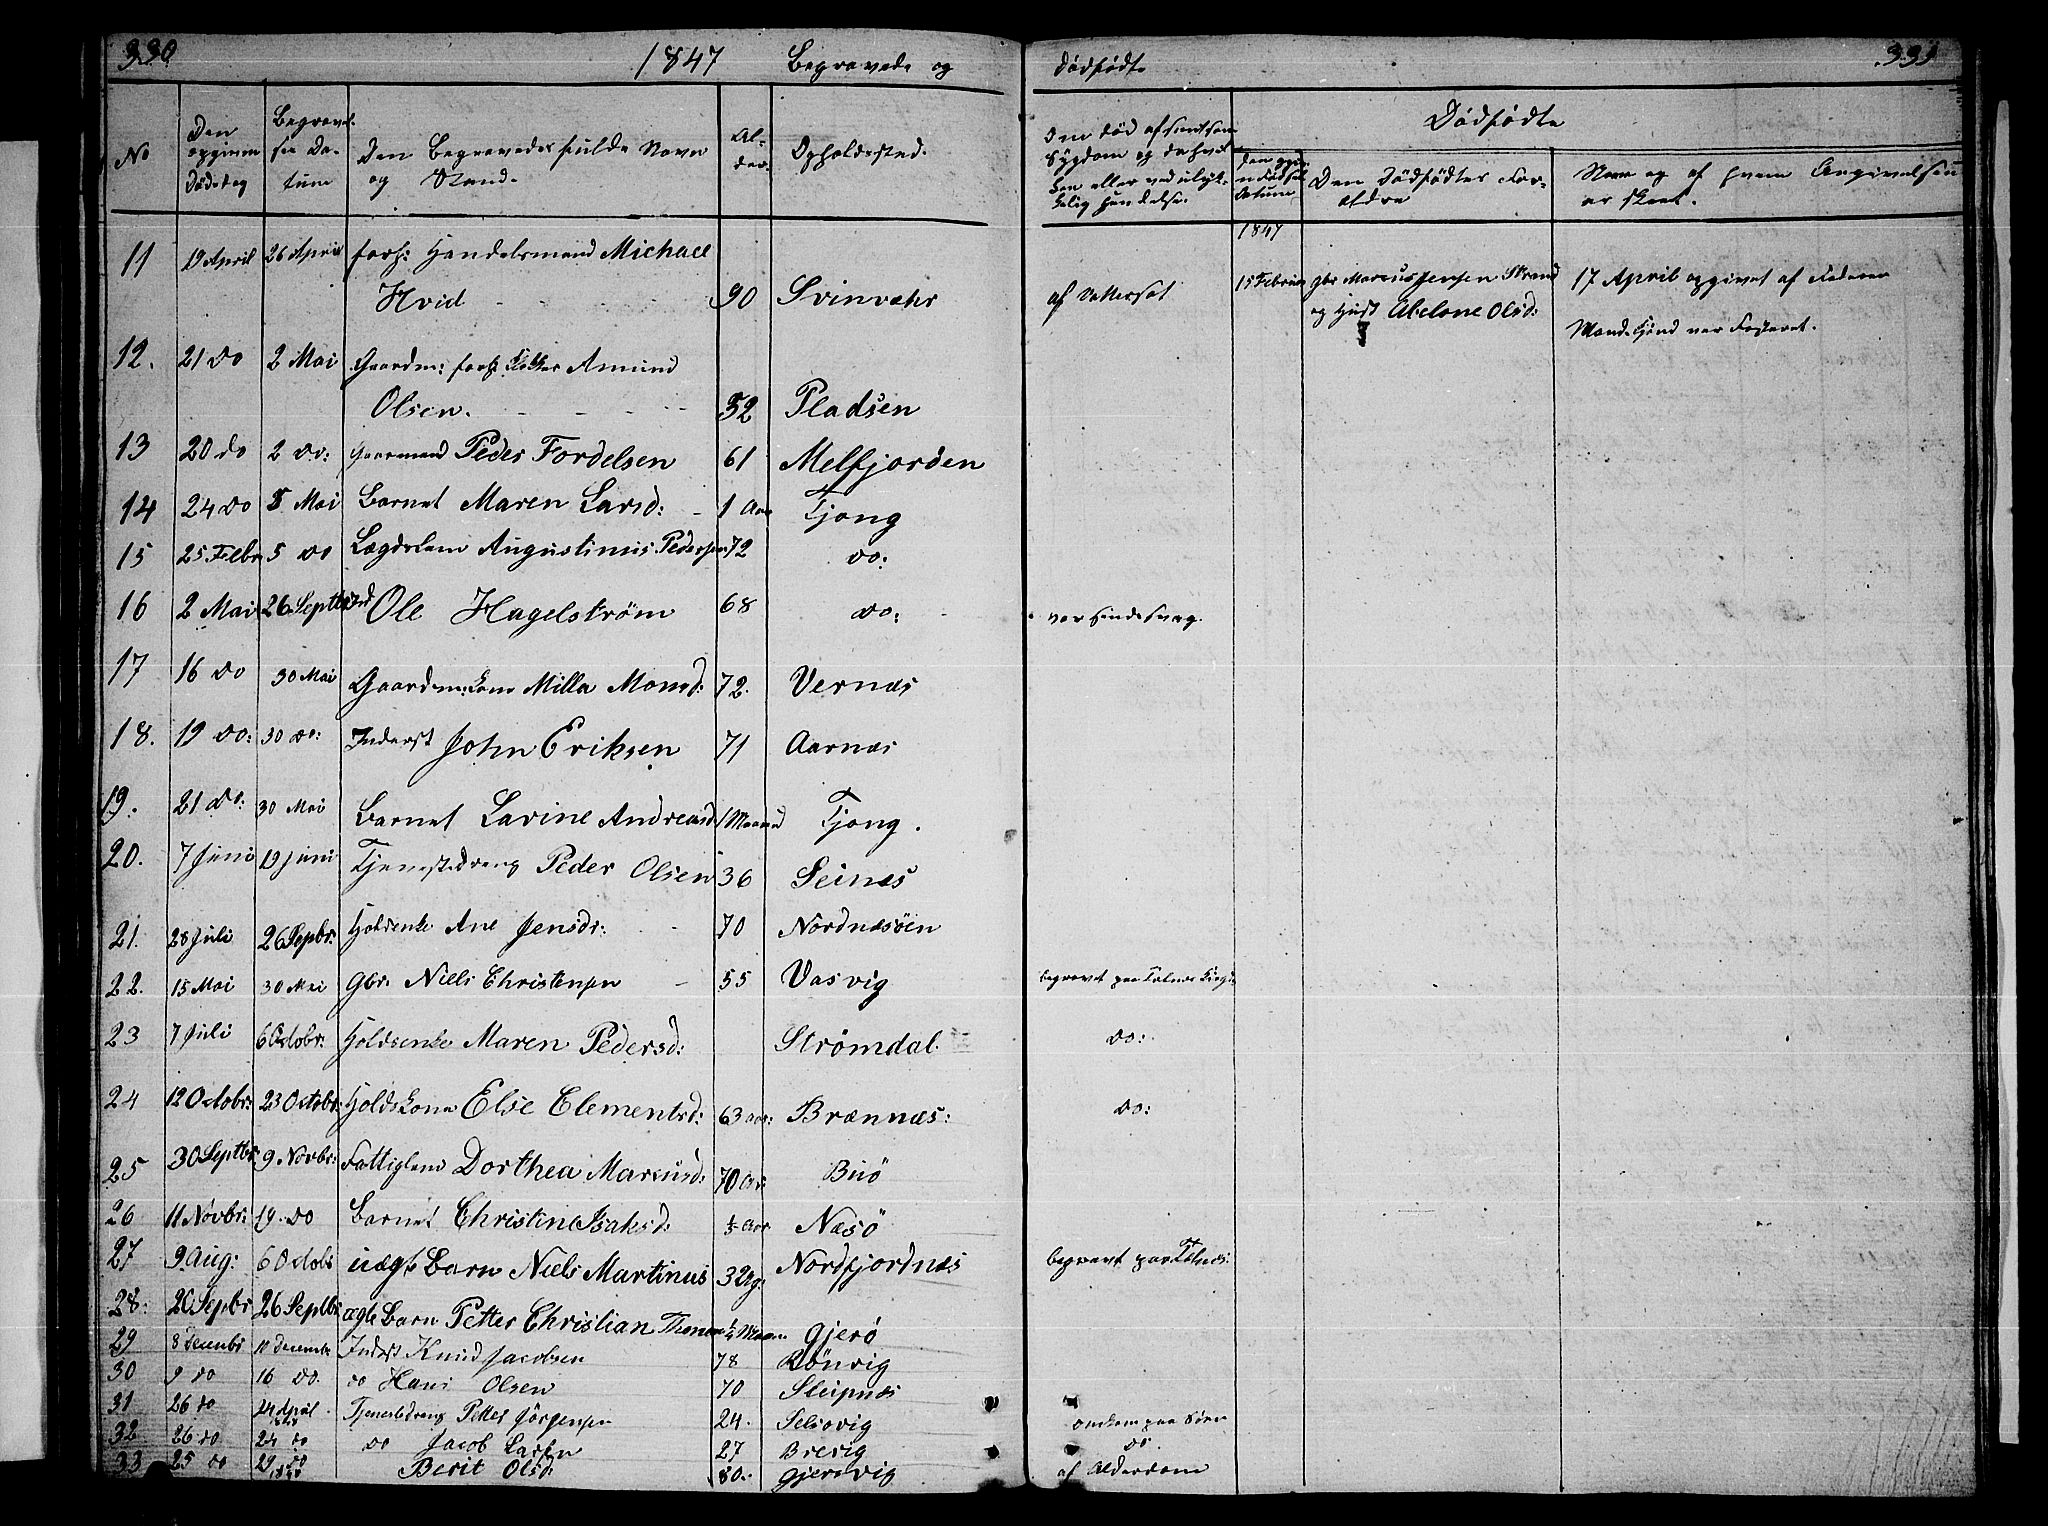 330 1847 Begravede og Dødfødte 331
No Den opgivne Dødsdag Begravelsse Datum Den Begravedes fulde Navn og Stand. Alder. Opholdssted. Om død af smitsom Sygdom og da hvilken eller ved ulykkelig Hændelse. Dødfødte
Datum Den Dødfødtes Forældre Navn og af hvem Angivelsen er skeet.
1847
11 19 April 26 April forh: Handelsmand Michael
Hvid 90 Svinvær af 15 Februar Gbr Marcus Jensen Strand 17 April opgivet af Faderen
og Hust Abelone Olsd: Mandkjønd var Fosteret.
12. 21 do 2 Mai Gaardm: forh: Amund
Olsen. 52 Pladsen
13 20 do 2 do: Gaarmand Peder Fordelsen 61 Melfjorden
14 24 do 5 Mai Barnet Maren Larsd: 1 Aar Tjong
15 25 Febr 5 do Lægdslem Augustinus Pedersen 72 do:
16 2 Mai 26 Septbr Ole Hagelstrøm 68 do: var sindssvag.
17 16 do 30 Mai Gaardm: Kone Milla Monsd: 72. Vernæs
18. 19 do: 30 do: Inderst John Eriksen 71 Aarnæs
19. 21 do: 30 Mai Barnet Lavine Andreasd 1 Maaned Tjong.
20. 7 Juni 19 Juni Tjenestedreng Peder Olsen 36 Seinæs
21. 28 Juli 26 Sepbr: Holdsenke Ane Jensdr: 70 Nordnæsöen
22. 15 Mai 30 Mai Gbr. Niels Christensen 55 Vasvig begravet paa Telnes Kirkg:
23 7 Juli 6 Octobr: Holdsenke Maren Pedersd: Strømdal. do:
24 12 Octobr: 23 Octobr: Holdskone Else Clementsd: 63 aar: Brænnæs: do:
25 30 Septbr 9 Novbr: Fattiglem Dorthea Marcusd: 70 Aar Buö
26 11 Novbr: 19. do Barnet Christine Isaksd: ½ Aar Næsö
27 9 Aug: 6 Octobr uægte Barn Niels Martinus 3 Uger Nordfjordnæs begravet paa Telnæs:
28. 20 Sepbr 26 Septbr ægte Barn Petter Christian Thomsen ¼ Maaned Gjerø
29 8 Decembr 10 December Inderst Knud Jacobsen 78 Rönvig
30 9 do 16 do. do Hans Olsen 70 Sleipnæs
31 26 do 24 April 1848 Tjenestedreng Petter Jörgensen 24. Selsovig omkom paa Søen
32 26 do 24 do do Jacob Larsen 27 Brevig do.
33 25 do 29 do 1848 Berit Olsd: 80. Gjersvig af Alderdom